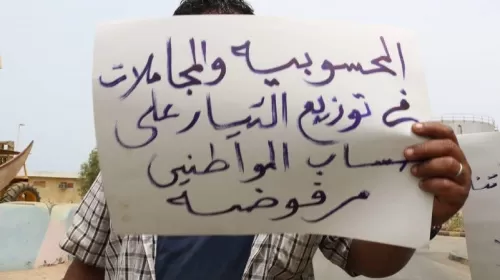 المحسوبيه والمجاملات
في توزيع التيار على
حساب المواطنين
مرفوضه